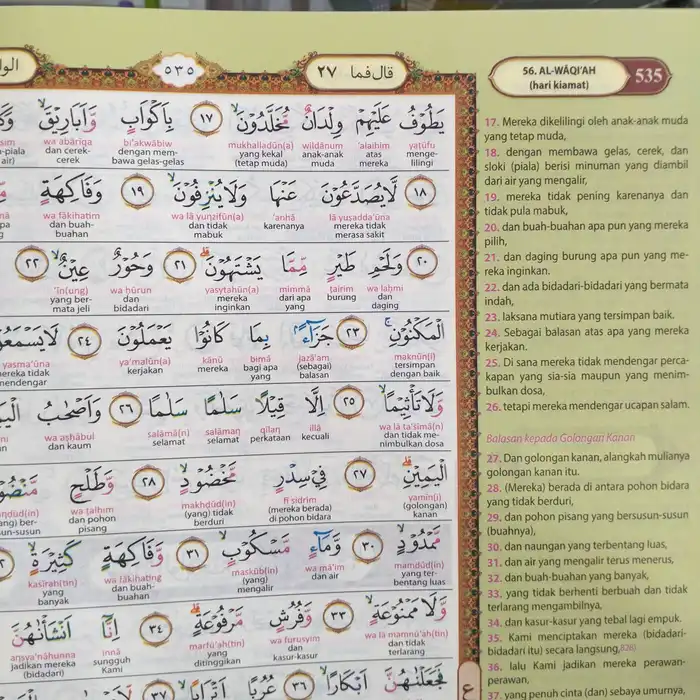 الو
٥٣٥
قال فما ٢٧
56. AL-WĀQI'AH
(hari kiamat)
535
يَطُوْفُ عَلَيْهِمْ وِلْدَانٌ مُّخَلَّدُوْنَۙ ١٧ بِاَكْوَابٍ وَّاَبَارِيْقَۙ
yaṭūfu 'alaihim wildānum mukhalladūn(a) bi'akwābiw wa abāriqa
menge-lilingi atas mereka anak-anak muda yang kekal (tetap muda) dengan mem-bawa gelas-gelas dan cerek-cerek
١٨ لَا يُصَدَّعُوْنَ عَنْهَا وَلَا يُنْزِفُوْنَۙ ١٩ وَفَاكِهَةٍ
lā yuṣadda'ūna 'anhā wa lā yunzifūn(a) wa fākihatim
mereka tidak merasa sakit karenanya dan tidak mabuk dan buah-buahan
٢٠ وَلَحْمِ طَيْرٍ مِّمَّا يَشْتَهُوْنَۗ ٢١ وَحُوْرٌ عِيْنٌۙ ٢٢
wa laḥmi ṭairim mimmā yasytahūn(a) wa ḥūrun 'īn(un)
dan daging burung dari apa yang mereka inginkan dan bidadari yang ber-mata jeli
الْمَكْنُوْنِۚ ٢٣ جَزَاۤءًۢ بِمَا كَانُوْا يَعْمَلُوْنَ ٢٤ لَا يَسْمَعُوْ
maknūn(i) jazā'am bimā kānū ya'malūn(a) yasma'ūna
tersimpan dengan baik (sebagai) balasan bagi apa yang mereka kerjakan mereka tidak mendengar
وَّلَا تَأْثِيْمًاۙ ٢٥ اِلَّا قِيْلًا سَلٰمًا سَلٰمًا ٢٦ وَاَصْحٰبُ
wa lā ta'ṡīmā(n) illā qīlan salāman salāmā(n) wa aṣḥābul
dan tidak me-nimbulkan dosa kecuali perkataan selamat selamat dan kaum
الْيَمِيْنِۗ ٢٧ فِيْ سِدْرٍ مَّخْضُوْدٍۙ ٢٨ وَّطَلْحٍ مَّنْضُوْ
yamīn(i) fī sidrim makhḍūd(in) wa ṭalḥim
(golongan) kanan (mereka berada) di pohon bidara (yang) tidak berduri dan pohon pisang
مَّمْدُوْدٍۙ ٣٠ وَّمَاۤءٍ مَّسْكُوْبٍۙ ٣١ وَّفَاكِهَةٍ كَثِيْرَةٍۙ
mamdūd(in) wa mā'im maskūb(in) wa fākihating kaṡīrah(tin)
yang ter-bentang luas dan air (yang) mengalir dan buah-buahan yang banyak
وَّلَا مَمْنُوْعَةٍۙ ٣٣ وَّفُرُشٍ مَّرْفُوْعَةٍۗ ٣٤ اِنَّآ اَنْشَأْنٰهُنَّ
wa lā mamnū'ah(tin) wa furusyim marfū'ah(tin) innā ansya'nāhunna
dan tidak terlarang dan kasur-kasur yang ditinggikan sungguh Kami jadikan mereka (bidadari)
فَجَعَلْنٰهُنَّ اَبْكَارًاۙ ٣٦ عُرُبًا اَتْرَابًاۙ ٣٧
ع
17. Mereka dikelilingi oleh anak-anak muda
yang tetap muda,
18. dengan membawa gelas, cerek, dan
sloki (piala) berisi minuman yang diambil
dari air yang mengalir,
19. mereka tidak pening karenanya dan
tidak pula mabuk,
20. dan buah-buahan apa pun yang mereka
pilih,
21. dan daging burung apa pun yang me-
reka inginkan.
22. dan ada bidadari-bidadari yang bermata
indah,
23. laksana mutiara yang tersimpan baik.
24. Sebagai balasan atas apa yang mereka
kerjakan.
25. Di sana mereka tidak mendengar perca-
kapan yang sia-sia maupun yang menim-
bulkan dosa,
26. tetapi mereka mendengar ucapan salam.
Balasan kepada Golongan Kanan
27. Dan golongan kanan, alangkah mulianya
golongan kanan itu.
28. (Mereka) berada di antara pohon bidara
yang tidak berduri,
29. dan pohon pisang yang bersusun-susun
(buahnya),
30. dan naungan yang terbentang luas,
31. dan air yang mengalir terus menerus,
32. dan buah-buahan yang banyak,
33. yang tidak berhenti berbuah dan tidak
terlarang mengambilnya,
34. dan kasur-kasur yang tebal lagi empuk.
35. Kami menciptakan mereka (bidadari-
bidadari itu) secara langsung,
36. lalu Kami jadikan mereka perawan-
perawan,
37. yang penuh cinta (dan) sebaya umurnya,